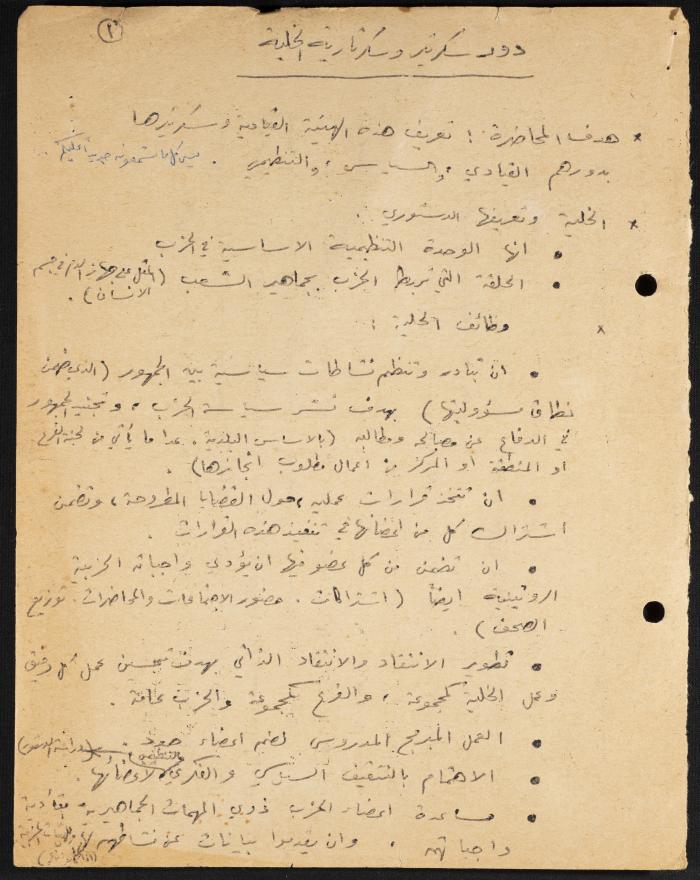 ١
دور سكرتير وسكرتارية الخلية
* هدف المحاضرة : تعريف هذه الهيئة القيادية وسكرتيرها
بدورهم القيادي ، والسياسي ، والتنظيمي .
* الخلية وتعريفها الدستوري .
• انها الوحدة التنظيمية الاساسية في الحزب
• الحلقة التي تربط الحزب بجماهير الشعب (المثل على جهاز الدم في جسم
الانسان) .
x وظائف الخلية :
• ان تبادر وتنظم نشاطات سياسية بين الجمهور (الذي ضمن
نطاق مسؤوليتها) بهدف نشر سياسة الحزب ، وتجنيد الجمهور
في الدفاع عن مصالحه ومطالبه (بالاساس البلدية . عدا ما يأتي من لجنة الفرع
او المنطقة او المركز من اعمال مطلوب انجازها) .
• ان تتخذ قرارات عملية ، حول القضايا المطروحة ، وتضمن
اشتراك كل من اعضائها في تنفيذ هذه القرارات .
• ان تضمن من كل عضو فيها ان يؤدي واجباته الحزبية
الروتينية ايضاً (اشتراكات . حضور الاجتماعات والمحاضرات . توزيع
الصحف) .
• تطوير الانتقاد والانتقاد الذاتي بهدف تحسين عمل كل رفيق
وعمل الخلية كمجموعة ، والفرع كمجموعة والحزب عامة .
• العمل المبرمج المدروس لضم اعضاء جدد .
• الاهتمام بالتثقيف السياسي والفكري والتنظيمي لاعضائها .
• مساعدة اعضاء الحزب ذوي المهمات الجماهيرية بتأدية
واجباتهم . وان يقدموا بيانات عن نشاطهم